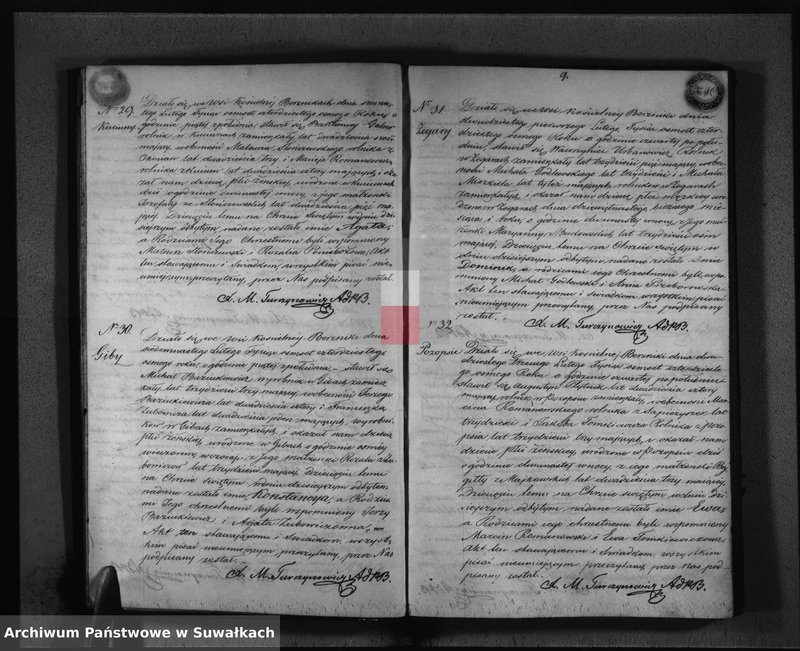 No 29.
Kukwiany
Działo się we wsi Kościelnej Berznikach dnia
Lutego Tysiąc osmset czterdziestego osmego Roku o
godzinie piątej z południa, stawił się Bartłomiej
rolnik w zamieszkały lat dwadzieścia
mający wobecności Mateusza rolnika z
lat dwadzieścia trzy i Macieja Romanowicza
rolnika z lat dwadzieścia cztery mających, i oka-
zał nam dziecię płci żeńskiej, urodzone w
dziś o godzinie dwunastej w nocy z jego małżonki
Józefaty ze lat dwadzieścia pięć ma-
jącej. Dziecięciu temu na Chrzcie Świętym w dniu dzi-
siejszym odbytym nadane zostało imie Agata,
a Rodzicami Jego Chrzestnemi byli wspomniony
Mateusz i Rozalia Akt
ten stawającemu i Świadkom wszystkim pisać nie
umiejącym przeczytany, przez Nas podpisany został.
A. M. Turzynowicz Ad PB.
No 30.
Giby
Działo się we wsi Kościelnej Berzniki dnia
siedemnastego Lutego Tysiąc osmset czterdziestego
osmego roku o godzinie piątej z południa, stawił się
Michał Barzukiewicz wyrobnik w Gibach zamiesz-
kały, lat trzydzieści trzy mający, wobecności Jerzego
Barzukiewicza lat dwadzieścia cztery i Franciszka
lat dwadzieścia jeden mających, wyrobni-
ków w Gibach zamieszkałych i okazał nam dziecię
płci żeńskiej, urodzone w Gibach o godzinie osmej
wieczorem wczoraj, z Jego małżonki Rozalii z
lat trzydzieści mającej. Dziecięciu temu
na Chrzcie Świętym w dniu dzisiejszym odbytym
nadane zostało imie Konstancya, a Rodzica-
mi Jego chrzestnemi byli wspomniony Jerzy
Barzukiewicz i Agata
Akt ten stawającemu i Świadkom, wszyst-
kim pisać nieumiejącym przeczytany, przez Nas
podpisany został.
A. M. Turzynowicz Ad PB.
9.
No 31.
Zegary
Działo się we wsi Kościelnej Berzniki dnia
dwudziestego pierwszego Lutego Tysiąc osmset czter-
dziestego osmego Roku o godzinie czwartej po połu-
dniu, stawił się Wawrzyniec Urbanowicz
w Zegarach zamieszkały lat trzydzieści pięć mający wobec-
ności Michała Godlewskiego lat trzydzieści i Michała
lat tyleż mających, rolników w Zegarach
zamieszkałych i okazał nam dziecię płci męzkiej uro-
dzone w Zegarach dnia dziewiętnastego bieżącego mie-
siąca i roku o godzinie dwunastej w nocy, z jego mał-
żonki Maryanny lat trzydzieści osm
mającej. Dziecięciu temu na Chrzcie Świętym w
dniu dzisiejszym odbytym nadane zostało imie
Dominik, a rodzicami jego Chrzestnemi byli wspo-
mniony Michał Godlewski i Anna
Akt ten stawającemu i Świadkom wszystkim pisać
nieumiejącym przeczytany, przez Nas podpisany
został.
A. M. Turzynowicz Ad PB.
No 32.
Pozopsie
Działo się we wsi Kościelnej Berzniki dnia dwu-
dziestego trzeciego Lutego Tysiąc osmset czterdzieste-
go osmego Roku o godzinie czwartej po południu
stawił się Augustyn lat dwadzieścia cztery
mający rolnik w Pozopsiu zamieszkały, wobecności Mar-
cina Romanowskiego rolnika z lat
trzydzieści i Jakóba Tomkiewicza Rolnika z Pozo-
psia lat trzydzieści trzy mających, i okazał nam
dziecie płci żeńskiej urodzone w Pozopsiu dziś
o godzinie dwunastej w nocy, z jego małżonki Bry-
gitty z Majkowskich lat dwadzieścia trzy mającej,
Dziecięciu temu na Chrzcie świętym w dniu dzi-
siejszym odbytym nadane zostało imie Ewa,
a Rodzicami jego chrzestnemi byli wspomniony
Marcin Romanowski i Ewa Tomkiewiczowa.
Akt ten stawającemu i Świadkom, wszystkim
pisać nieumiejącym przeczytany, przez Nas pod-
pisany został.
A. M. Turzynowicz Ad PB.
Archiwum Państwowe w Suwałkach